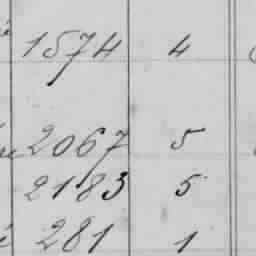 1574 4
2067 5
2183 5
281 1